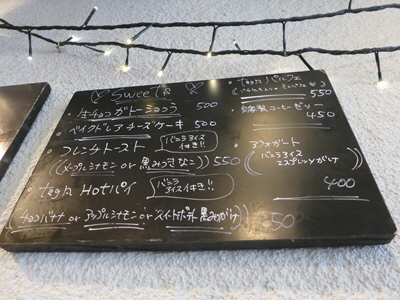 Sweets
・生チョコ ガトーショコラ 500
・ベイクドレアチーズケーキ 500
・フレンチトースト バニラアイス付き!!
((メープルシナモン or 黒みつきなこ)) 550
Hotパイ バニラアイス付き!!
((チョコバナナ or アップルシナモン or スイートポテト黒みつがけ)) 550
パルフェ
550
・自家製コーヒーゼリー
450
・アフォガート
(バニラアイス
エスプレッソがけ)
400